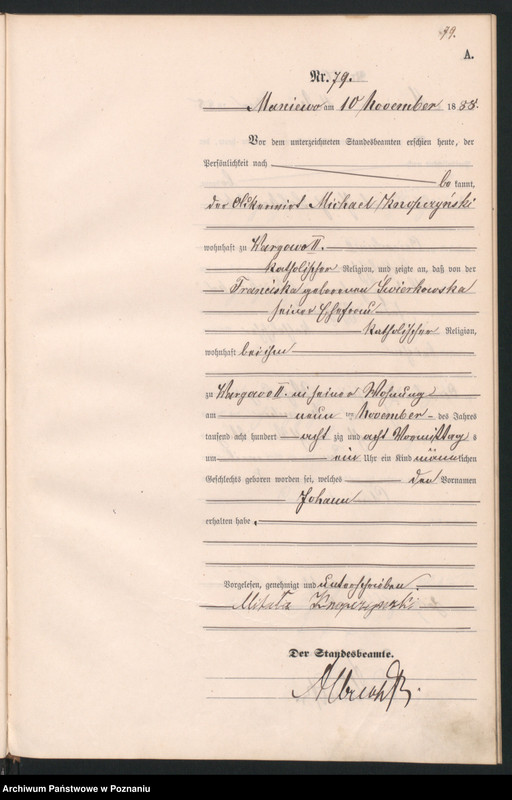 79.
A.
Nr. 79.
Maniewo am 10 November 1888.
Vor dem unterzeichneten Standesbeamten erschien heute, der
Persönlichkeit nach
be kannt,
der Ackerwirt Michael Knopczyński
wohnhaft zu Wargowo II.
katholischer Religion, und zeigte an, daß von der
Franciska geborenen Swiorkowska
seiner Ehefrau
katholischer Religion,
wohnhaft bei ihm
zu Wargowo II. in seiner Wohnung
am neun ten November des Jahres
tausend acht hundert acht zig und acht Vormittag s
um ein Uhr ein Kind männlichen
Geschlechts geboren worden sei, welches den Vornamen
Johann
erhalten habe.
Vorgelesen, genehmigt und unterschrieben.
Der Standesbeamte.
Albrecht
Archiwum Państwowe w Poznaniu